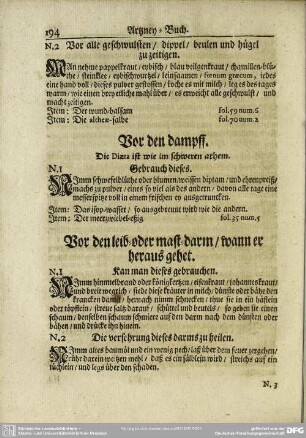 194 Artzney-Buch.
N.2 Vor alle geschwulsten / dippel / beulen und hügel
zu zeitigen.
MAn nehme pappelkraut / eybisch / blau veilgenkraut / chamillen-blü-
the / steinklee / eybischwurtzel / leinsaamen / fœnum græcum, jedes
eine hand voll / dieses pulver gestossen / koche es mit milch / leg es des tages
warm / wie einen brey etliche mahl über / es erweicht alle geschwulst / und
macht zeitigen.
Item: Der wund-balsam fol.59 num.6
Item: Die althææ-salbe fol.70 num.2
Vor den dampff.
Die Diæta ist wie im schweren athem.
N.1 Gebrauch dieses.
NImm schwefelblüthe oder blumen / weissen diptam / und ehrenpreiß /
machs zu pulver / eines so viel als des andern / davon alle tage eine
messerspitz voll in einem frischen ey ausgetruncken.
Item: Das isop-wasser / so ausgebrennt wird wie die andern.
Item: Der meerzwiebel-eßig fol.35 num.5
Vor den leib- oder mast-darm / wann er
heraus gehet.
N.1 Kan man dieses gebrauchen.
NImm himmelbrand oder königskertzen / eisenkraut / johanneskraut /
und breit wegrich / siede diese kräuter in milch / dünste oder bähe den
krancken damit / hernach nimm schnecken / thue sie in ein häfelein
oder töpflein / streue saltz darauf / schüttel und beutels / so geben sie einen
schaum / denselben schaum schmiere auf den darm nach dem dünsten oder
bähen / und drücke ihn hinein.
N.2 Die versehrung dieses darms zu heilen.
NImm altes baumöl und ein wenig pech / laß über dem feuer zergehen /
rühr darein weitzen mehl / daß es ein sälblein wird / streichs auf ein
tüchlein / und legs über den schaden.
N.3